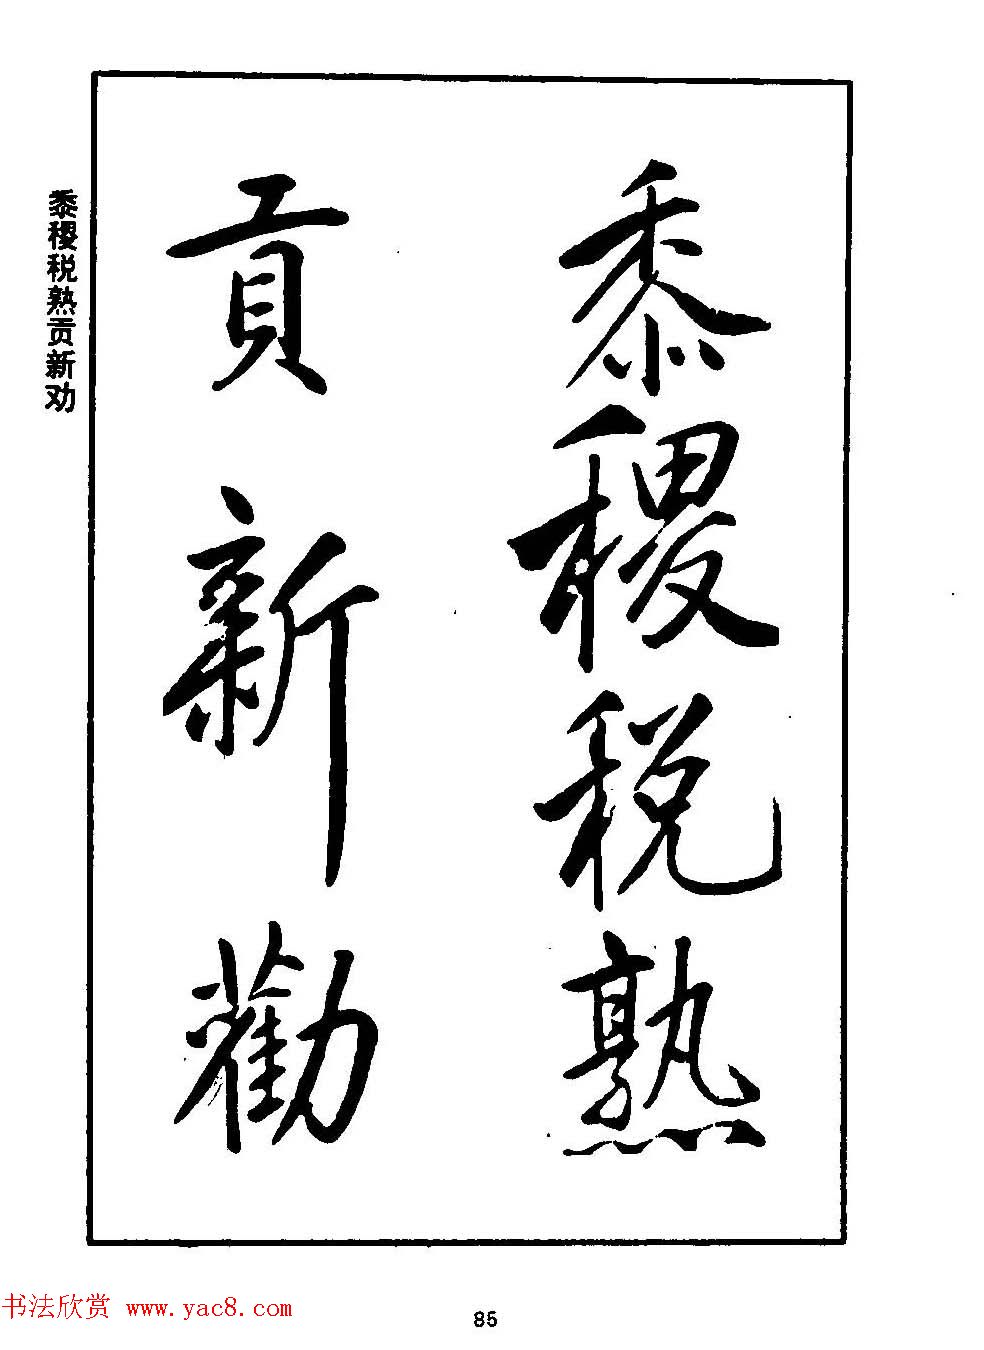 黍稷税熟
貢新勸
黍稷税熟贡新劝
书法欣赏 www.yac8.com
85